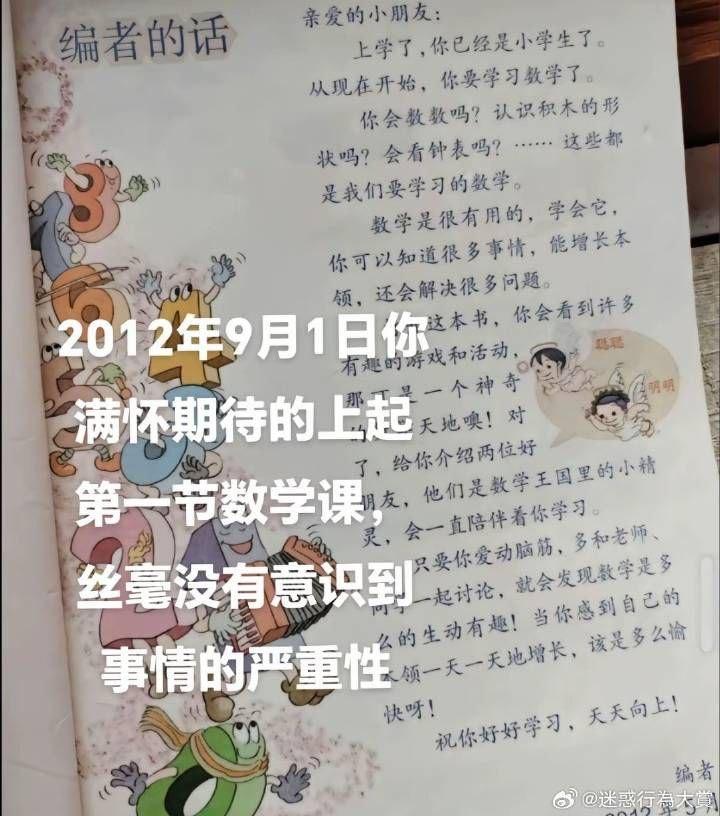 编者的话
亲爱的小朋友:
上学了,你已经是小学生了。
从现在开始,你要学习数学了。
你会数数吗?认识积木的形
状吗?会看钟表吗?……这些都
是我们要学习的数学。
数学是很有用的,学会它,
你可以知道很多事情,能增长本
领,还会解决很多问题。
这本书,你会看到许多
有趣的游戏和活动,
是一个神奇
天地噢!对
了,给你介绍两位好
朋友,他们是数学王国里的小精
灵,会一直陪伴着你学习。
只要你爱动脑筋,多和老师、
一起讨论,就会发现数学是多
么的生动有趣!当你感到自己的
本领一天一天地增长,该是多么愉
快呀!
祝你好好学习,天天向上!
编者
2012年5月
聪聪
明明
2012年9月1日你
满怀期待的上起
第一节数学课,
丝毫没有意识到
事情的严重性
@迷惑行為大賞